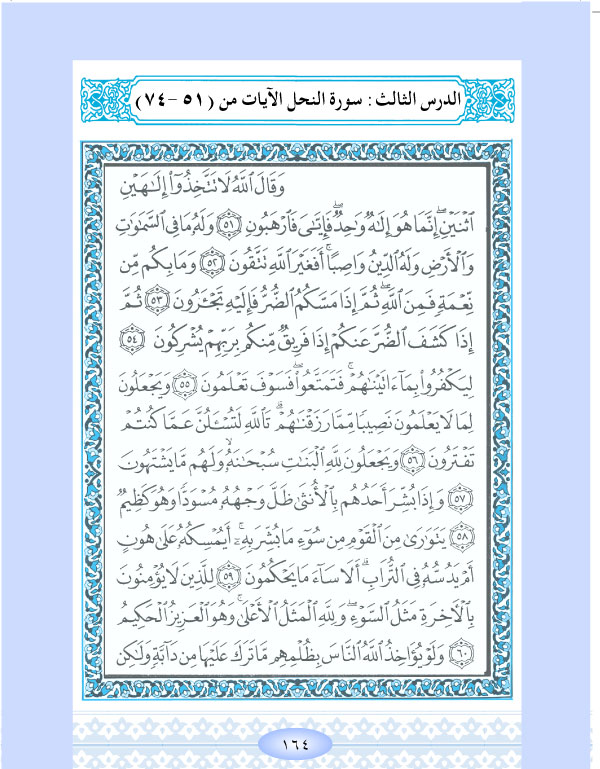 الدرس الثالث : سورة النحل الآيات من ( ٥١ - ٧٤ )
وَقَالَ ٱللَّهُ لَا تَتَّخِذُوٓا۟ إِلَـٰهَيْنِ
ٱثْنَيْنِ ۖ إِنَّمَا هُوَ إِلَـٰهٌ وَٰحِدٌ ۖ فَإِيَّـٰىَ فَٱرْهَبُونِ ٥١ وَلَهُۥ مَا فِى ٱلسَّمَـٰوَٰتِ
وَٱلْأَرْضِ وَلَهُ ٱلدِّينُ وَاصِبًا ۚ أَفَغَيْرَ ٱللَّهِ تَتَّقُونَ ٥٢ وَمَا بِكُم مِّن
نِّعْمَةٍ فَمِنَ ٱللَّهِ ۖ ثُمَّ إِذَا مَسَّكُمُ ٱلضُّرُّ فَإِلَيْهِ تَجْـَٔرُونَ ٥٣ ثُمَّ
إِذَا كَشَفَ ٱلضُّرَّ عَنكُمْ إِذَا فَرِيقٌ مِّنكُم بِرَبِّهِمْ يُشْرِكُونَ ٥٤
لِيَكْفُرُوا۟ بِمَآ ءَاتَيْنَـٰهُمْ ۚ فَتَمَتَّعُوا۟ ۖ فَسَوْفَ تَعْلَمُونَ ٥٥ وَيَجْعَلُونَ
لِمَا لَا يَعْلَمُونَ نَصِيبًا مِّمَّا رَزَقْنَـٰهُمْ ۗ تَٱللَّهِ لَتُسْـَٔلُنَّ عَمَّا كُنتُمْ
تَفْتَرُونَ ٥٦ وَيَجْعَلُونَ لِلَّهِ ٱلْبَنَـٰتِ سُبْحَـٰنَهُۥ ۙ وَلَهُم مَّا يَشْتَهُونَ
٥٧ وَإِذَا بُشِّرَ أَحَدُهُم بِٱلْأُنثَىٰ ظَلَّ وَجْهُهُۥ مُسْوَدًّا وَهُوَ كَظِيمٌ
٥٨ يَتَوَٰرَىٰ مِنَ ٱلْقَوْمِ مِن سُوٓءِ مَا بُشِّرَ بِهِۦٓ ۚ أَيُمْسِكُهُۥ عَلَىٰ هُونٍ
أَمْ يَدُسُّهُۥ فِى ٱلتُّرَابِ ۗ أَلَا سَآءَ مَا يَحْكُمُونَ ٥٩ لِلَّذِينَ لَا يُؤْمِنُونَ
بِٱلْأَخِرَةِ مَثَلُ ٱلسَّوْءِ ۖ وَلِلَّهِ ٱلْمَثَلُ ٱلْأَعْلَىٰ ۚ وَهُوَ ٱلْعَزِيزُ ٱلْحَكِيمُ
٦٠ وَلَوْ يُؤَاخِذُ ٱللَّهُ ٱلنَّاسَ بِظُلْمِهِم مَّا تَرَكَ عَلَيْهَا مِن دَآبَّةٍ وَلَـٰكِن
١٦٤